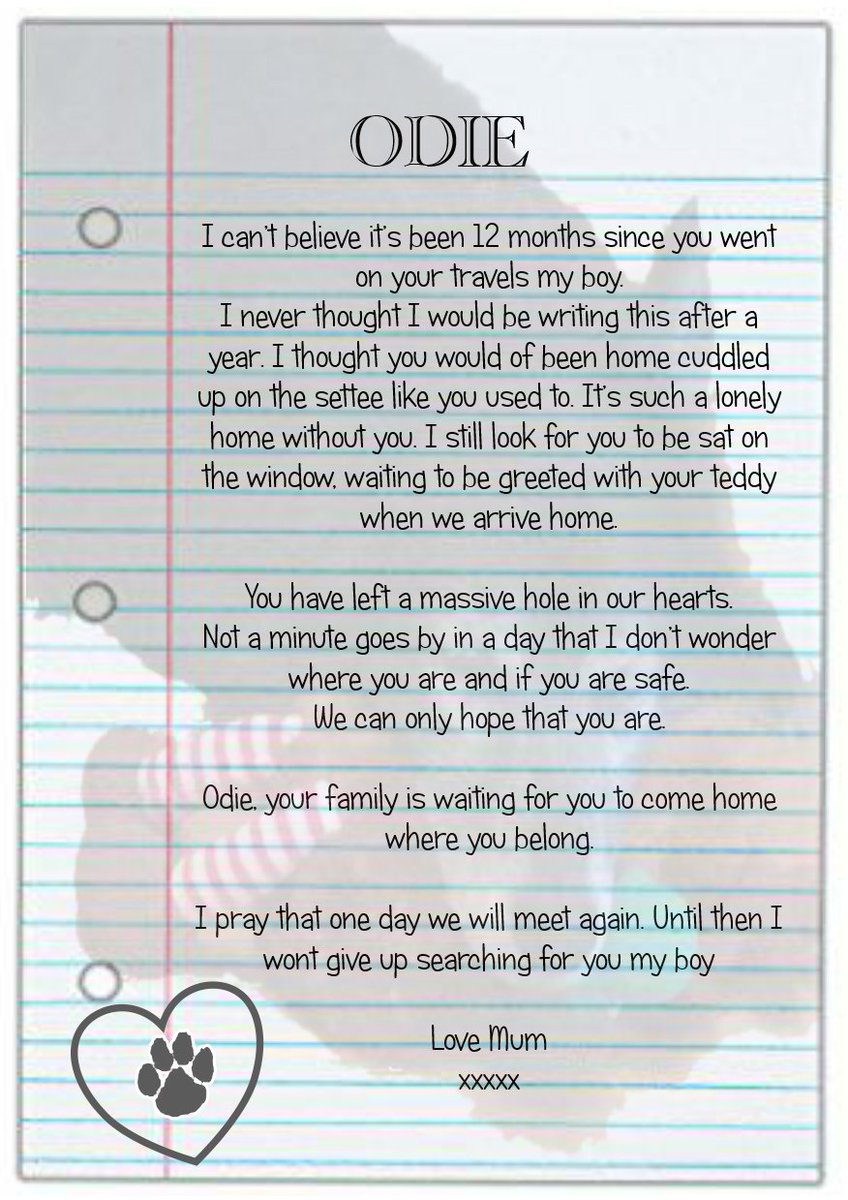 ODIE
I can't believe it's been 12 months since you went
on your travels my boy.
I never thought I would be writing this after a
year. I thought you would of been home cuddled
up on the settee like you used to. It's such a lonely
home without you. I still look for you to be sat on
the window, waiting to be greeted with your teddy
when we arrive home.
You have left a massive hole in our hearts.
Not a minute goes by in a day that I don't wonder
where you are and if you are safe.
We can only hope that you are.
Odie, your family is waiting for you to come home
where you belong.
I pray that one day we will meet again. Until then I
wont give up searching for you my boy
Love Mum
xxxxx